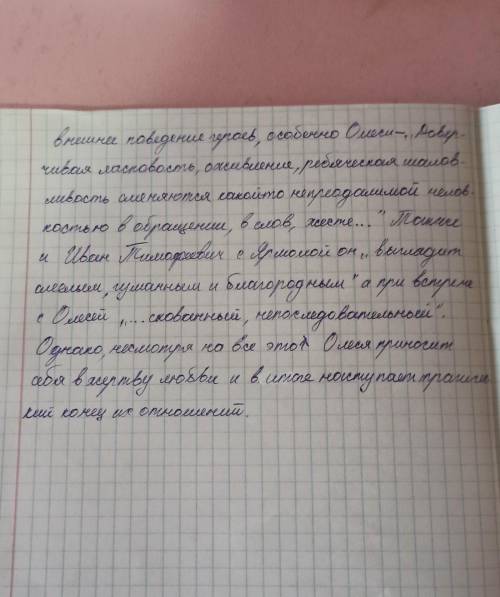 внешнее поведение героев, особенно Олеси – „Довер-
чивая ласковость, оживление, ребяческая шалов-
ливость сменяются какойто непреодолимой нелов-
костью в обращении, в слов, жесте..." Также
и Иван Тимофеевич с Ярмолой он „выглядит
смелым, гуманным и благородным" а при встрече
с Олесей „...скованный, непоследовательный".
Однако, несмотря на все это Олеся приносит
себя в жертву любви и в итоге наступает трагичес
кий конец их отношений.